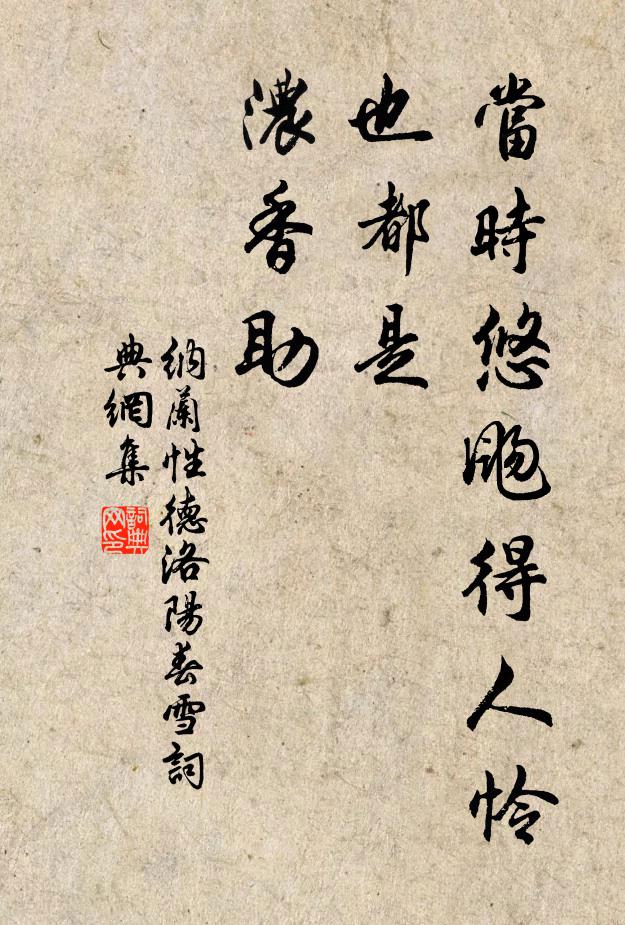 當時悠颺得人憐
也都是
濃香助
納蘭性德洛陽春雪詞
典網集
詞典網印